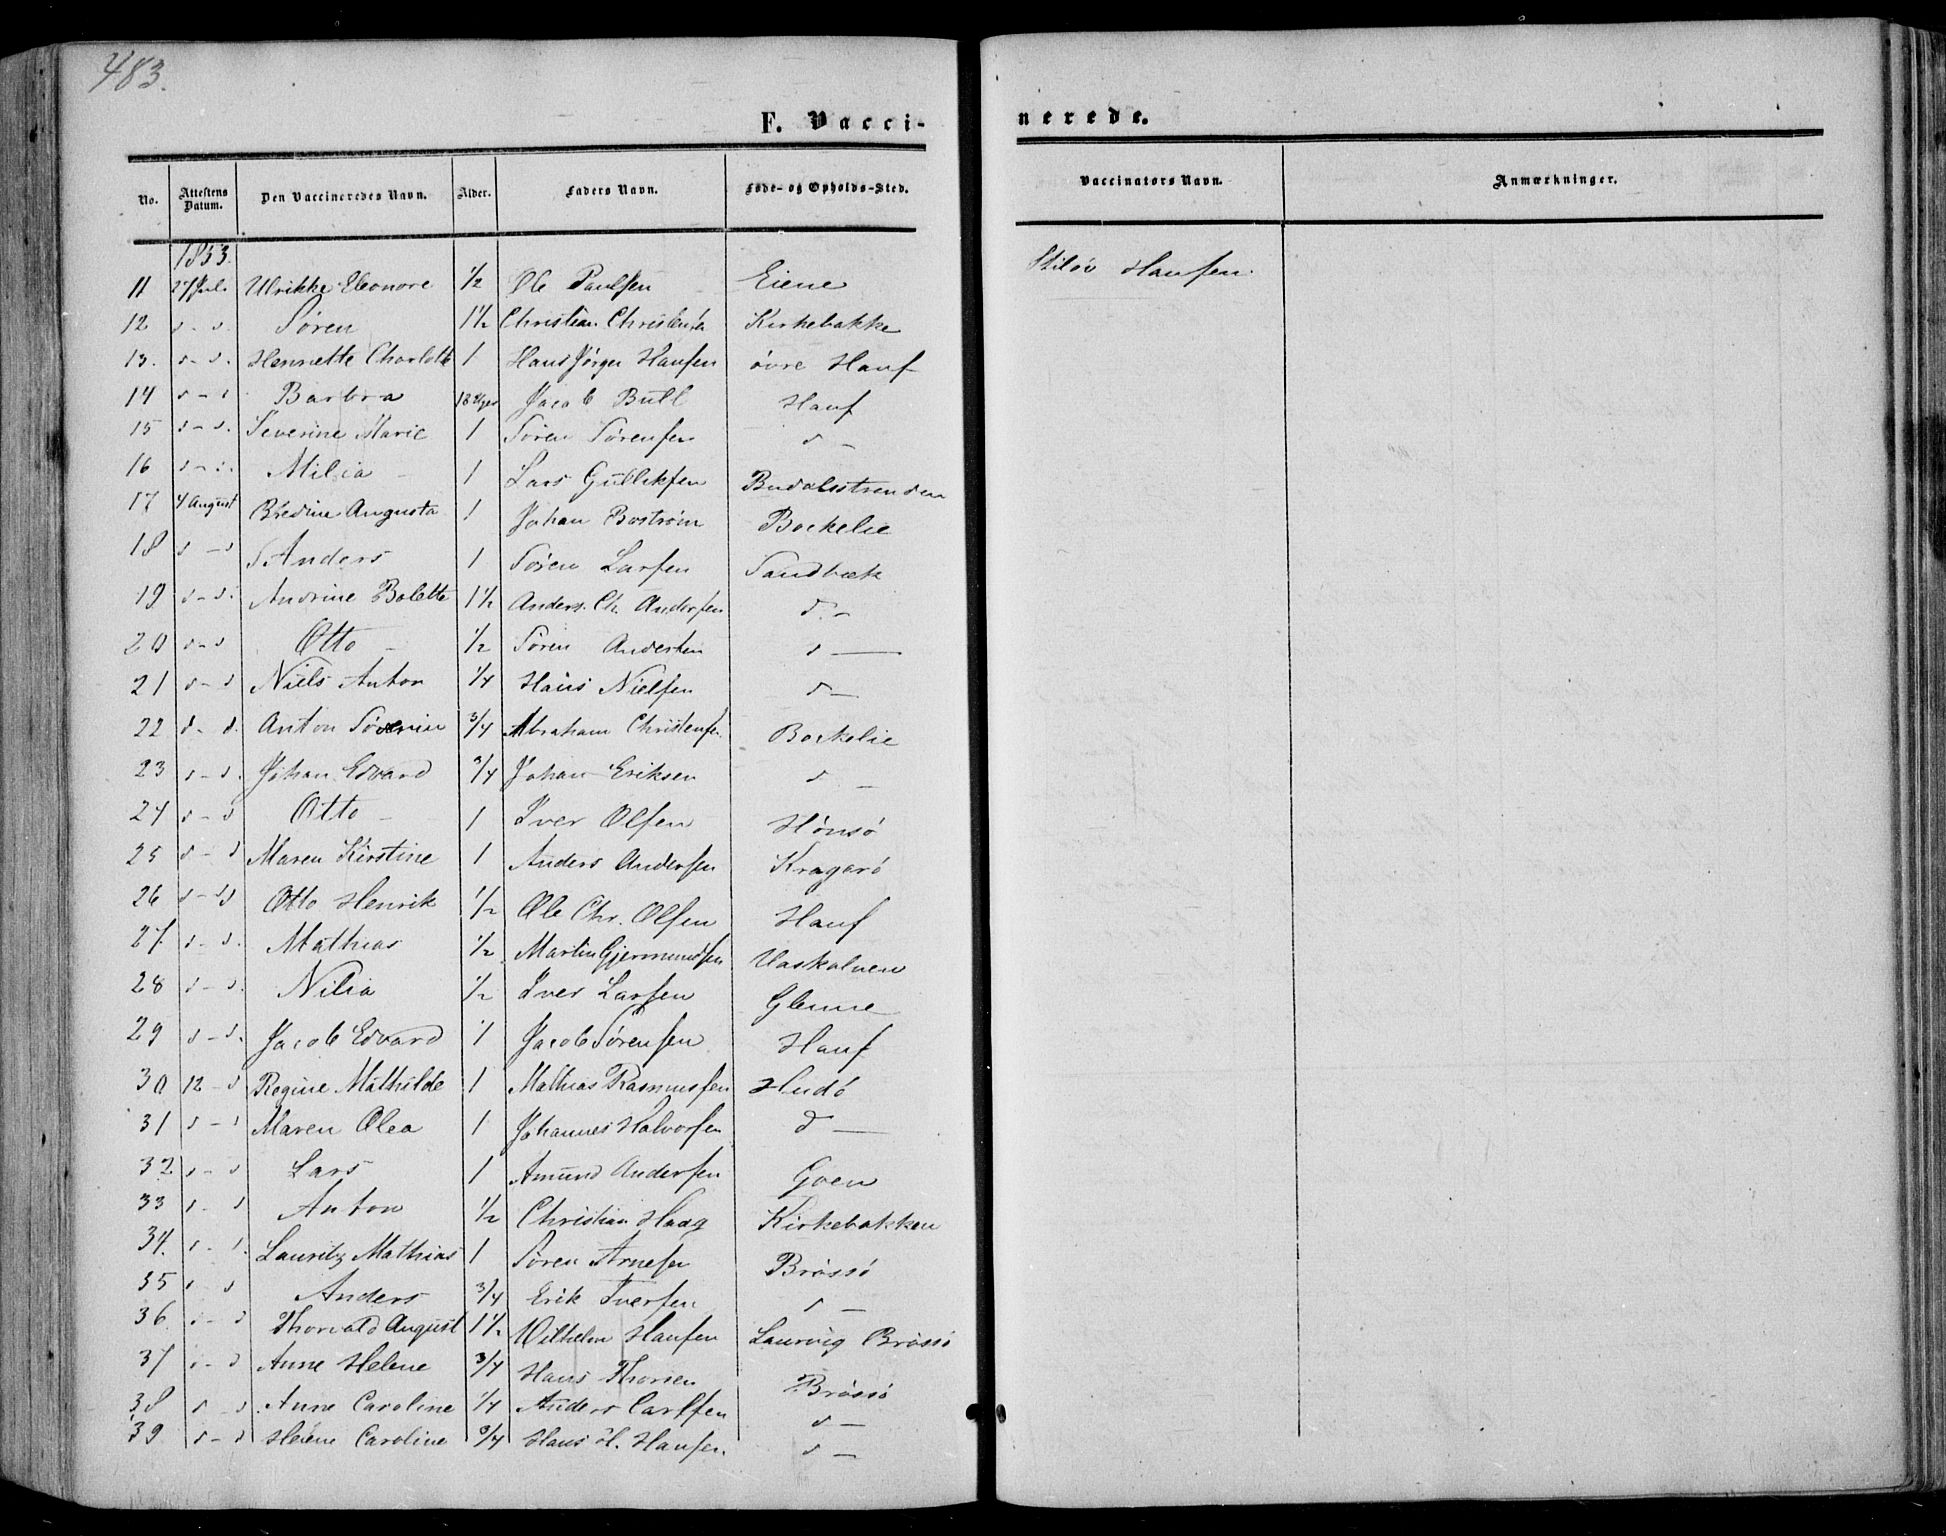 483.
F. Vacci-
nerede.
No. Attestens Datum. Den Vaccineredes Navn. Alder. Faders Navn. Føde- og Opholds-Sted.
Vaccinators Navn. Anmærkninger.
1853.
11 27 Juli Ulrikke Eleonore 1/2 Ole Paulsen Eiene Hansen.
12 d - d. Søren 1 1/2 Christian Christensen Kirkebakke
13. d - d. Hennette Charlotte 1 Hans Jørgen Hansen øvre Hauf
14 d - d Barbra 18 Uger Jacob Bull Hauf
15 d - d. Severine Marie 1 Søren Sørensen d -
16 d - d. Milia 1 Lars Gulliksen Budalsstranden
17 4 August Bredine Augusta 1 Johan Bostrøm Boekelie
18 d - d Anders 1 Søren Larsen Sandbæk
19 d - d. Andrine Bolette 1 1/2 Anders Ch. Andersen d. -
20 d - d Otto 1/2 Søren Andersen d -
21 d - d Niels Anton 1/4 Hans Nielsen d -
22 d - d. Anton Søverin 3/4 Abraham Christensen Boekelie
23 d - d. Johan Edvard 3/4 Johan Eriksen d -
24 d - d Otto 1 Iver Olsen Hønsø
25 d - d Maren Kirstine 1 Anders Andersen Kragerö
26 d - d Otto Henrik 1/2 Ole Chr. Olsen Hauf
27. d - d. Mathias 1/2 Martin Gjermundsen Vaskalven
28 d - d. Nilia 1/2 Iver Larsen Glenne
29 d - d. Jacob Edvard 1 Jacob Sørensen Hauf
30 12 - d Regine Mathilde 1 Mathias Rasmussen Hudö
31 d - d Maren Olea 1 Johannes Halvorsen d -
32 d - d Lars 1 Amund Andersen Goen
33 d - d Anton 1/2 Christian Haag Kirkebakken
34. d - d. Lauritz Mathias 1 Søren Arnesen Brøssö
35 d - d Anders 3/4 Erik Iversen d -
36 d - d Thorvald August 1 1/2 Wilhelm Hansen Laurvig Brøssö
37 d - d Anne Helene 3/4 Hans Thorsen Brøssö
38 d - d. Anne Caroline 1/4 Anders Carlsen d -
39 d - d Helene Caroline 3/4 Hans H. Hansen. d -